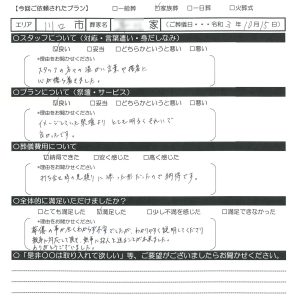 【今回ご依頼されたプラン】 □一般葬 ☑家族葬 □一日葬 □火葬式
エリア 川口市 葬家名 家 (ご葬儀日・・・令和3年10月15日)
○スタッフについて（対応・言葉遣い・身だしなみ）
☑良い □妥当 □どちらかというと悪い □悪い
*理由をお聞かせください
スタッフの方々の温かい言葉や
心が
○プランについて（祭壇・サービス）
☑良い □妥当 □どちらかというと悪い □悪い
*理由をお聞かせください
イメージしていた祭壇よりとても明るくきれいで
良かったです。
○葬儀費用について
☑納得できた □安く感じた □高く感じた
*理由をお聞かせください
打ち合せ時の見積りに
納得です。
○全体的に満足いただけましたか？
□とても満足した ☑満足した □少し不満を感じた □満足できなかった
*理由をお聞かせください
葬儀の事が全くわからず不安でしたが、わかりやすく説明してくださり
親身に対応して頂き、無事に父を送ることが出来ました。
ありがとうございました。
○「是非○○は取り入れて欲しい」等、ご要望がございましたらお聞かせください。